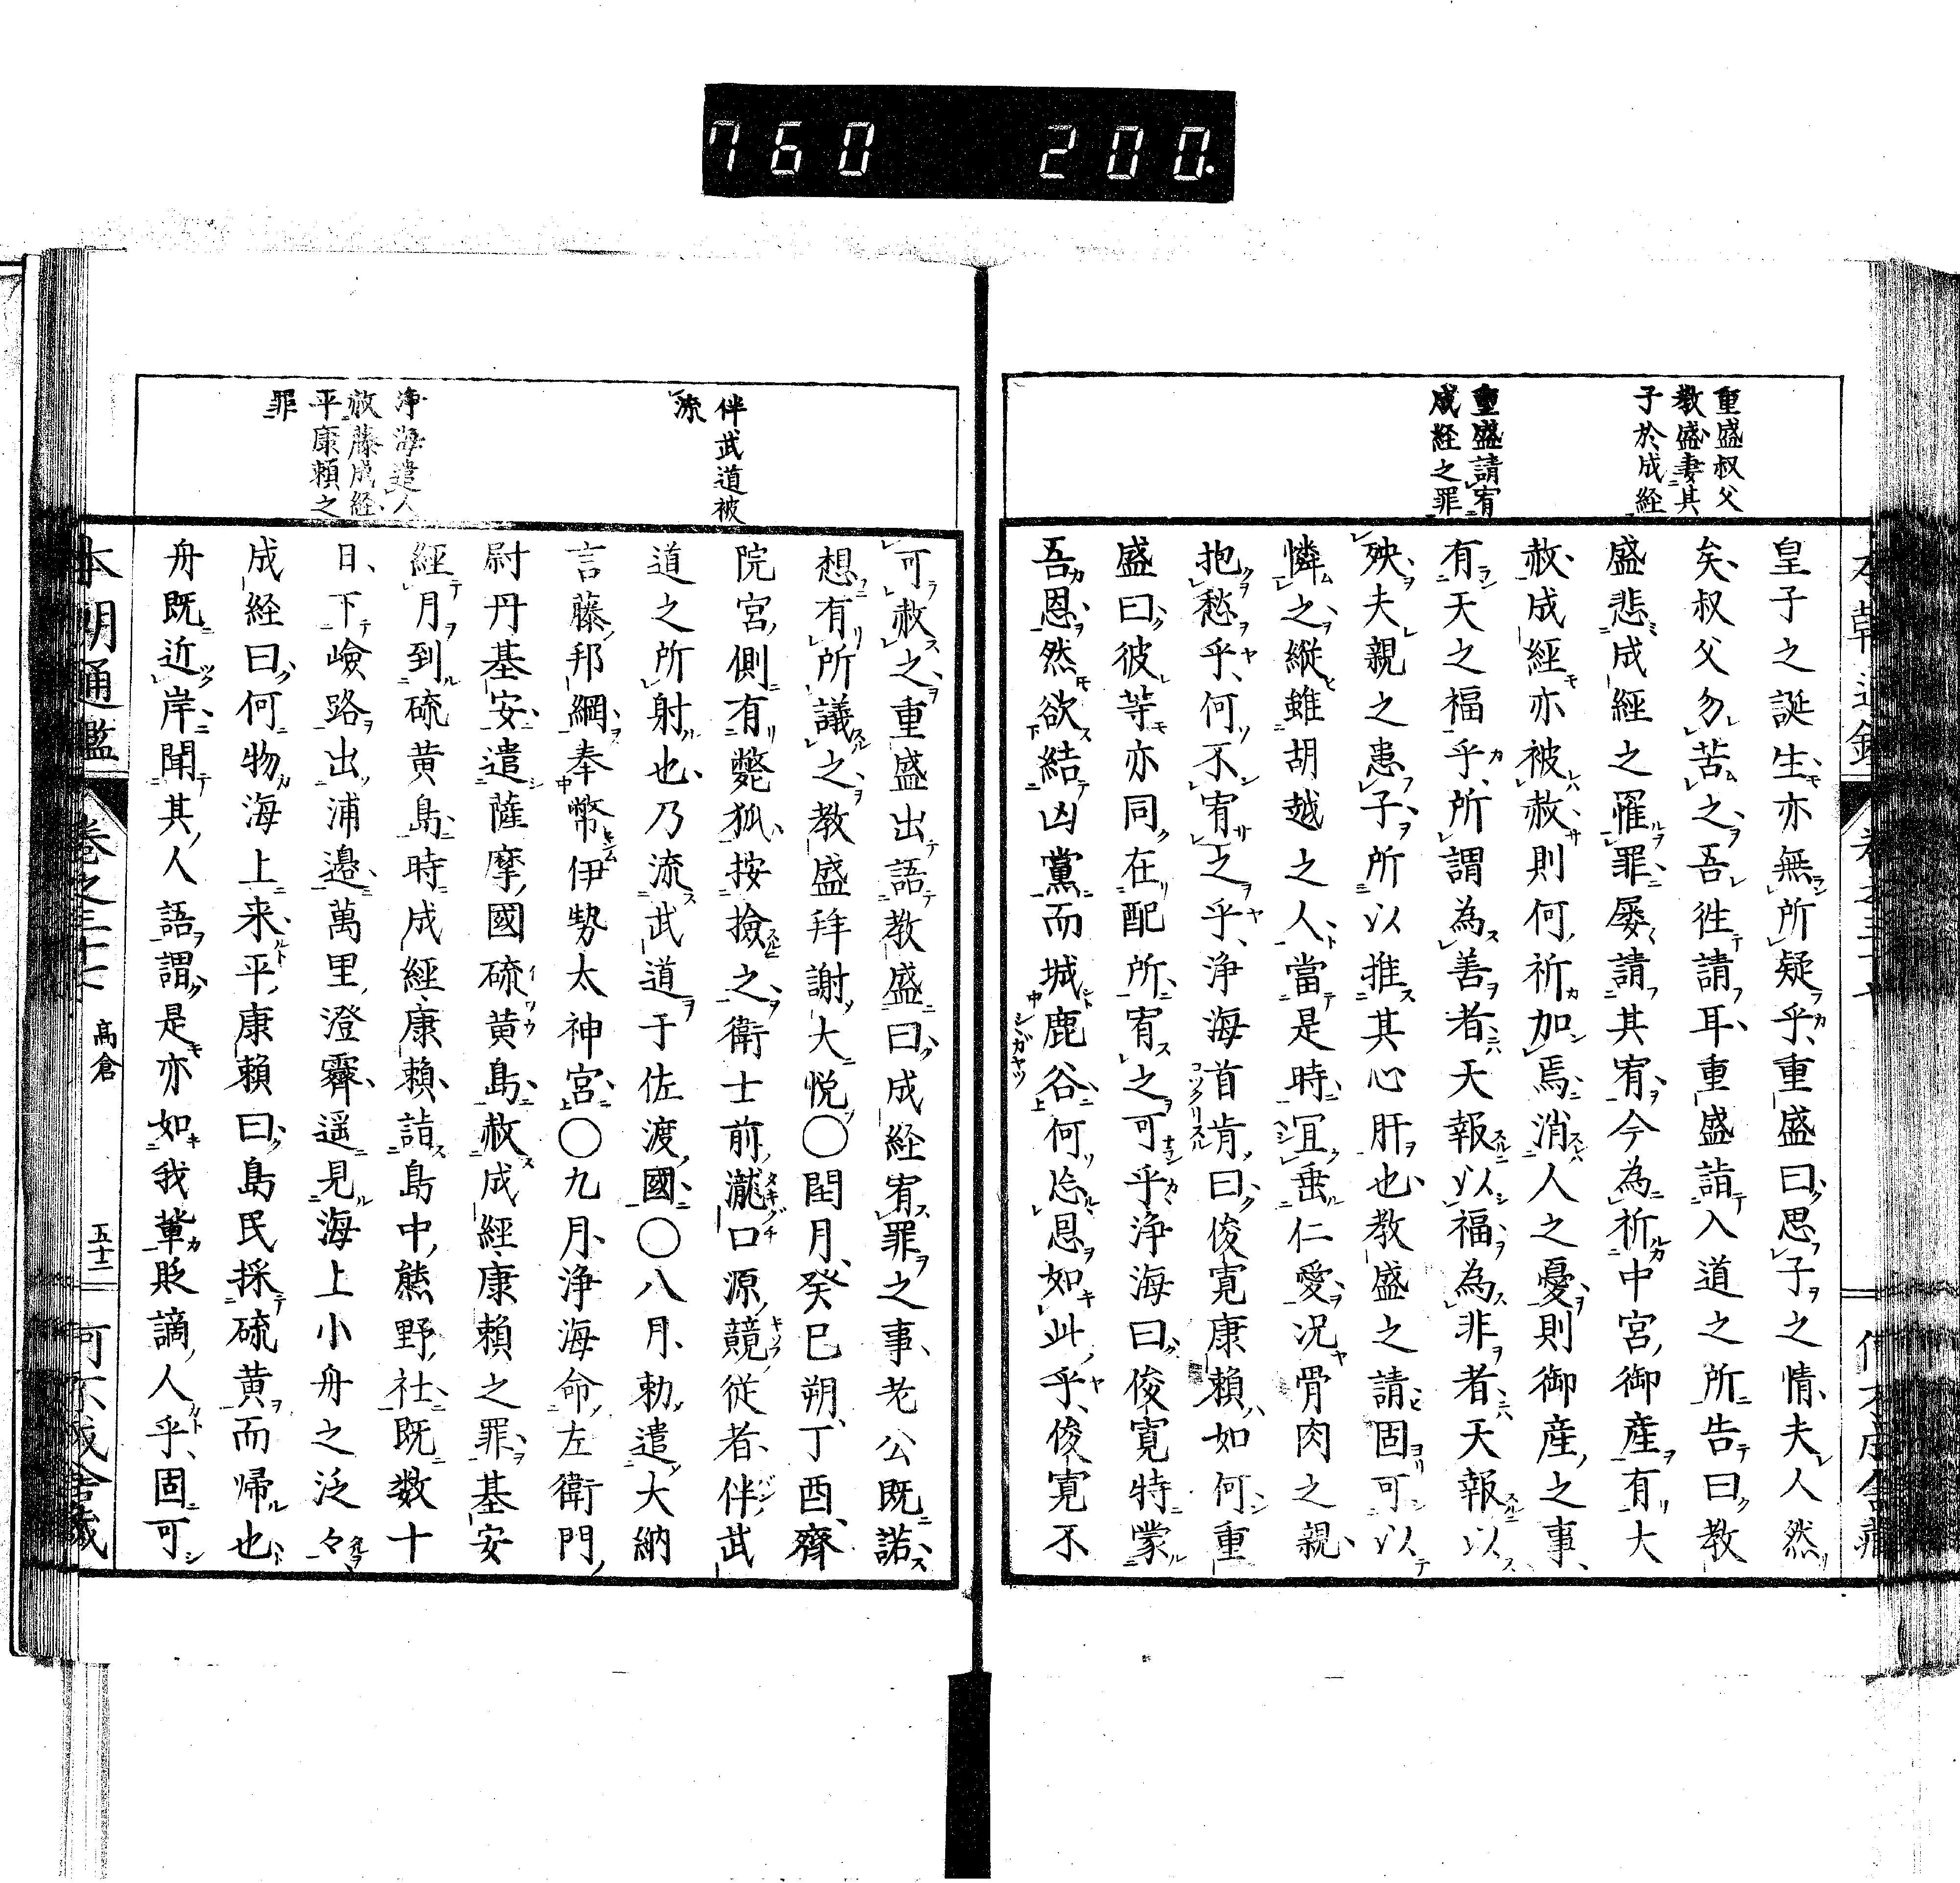 760 200.
重盛叔父
教盛妻其
子於成経
重盛請宥
成経之罪
皇子之誕生亦無所疑乎重盛曰思子之情夫人然
矣叔父勿苦之吾徃請耳重盛詣入道之所告曰教
盛悲成經之罹罪屡請其宥今為祈中宮御産有大
赦成經亦被赦則何祈加焉消人之憂則御産之事
有天之福乎所謂為善者天報以福為非者天報以
殃夫親之患子所以推其心肝也教盛之請固可以
憐之縱雖胡越之人當是時宜垂仁愛况骨肉之親
抱愁乎何不宥之乎浄海首肯曰俊寛康賴如何重
盛曰彼等亦同在配所宥之可乎浄海曰俊寛特蒙
吾恩然欲結凶黨而城鹿谷何忩恩如此乎俊寛不
伴武道被
流
浄海遣人
赦藤成経
平康頼之
罪
可赦之重盛出語教盛曰成経宥罪之事老公既諾
想有所議之教盛拜謝大悦〇閏月癸巳朔丁酉齋
院宮側有斃狐按撿之衛士前瀧口源競從者伴武
道之所射也乃流武道于佐渡國〇八月勅遣大納
言藤邦綱奉幣伊勢太神宮〇九月浄海命左衛門
尉丹基安遣薩摩國硫黄島赦成經康賴之罪基安
經月到硫黄島時成經康賴詣島中熊野社既数十
日下嶮路出浦邉萬里澄霽遥見海上小舟之泛々
成経曰何物海上来乎康賴曰島民採硫黄而帰也
舟既近岸聞其人語謂是亦如我輩貶謫人乎固可
本朝通鑑 巻之三十六 高倉 五十二